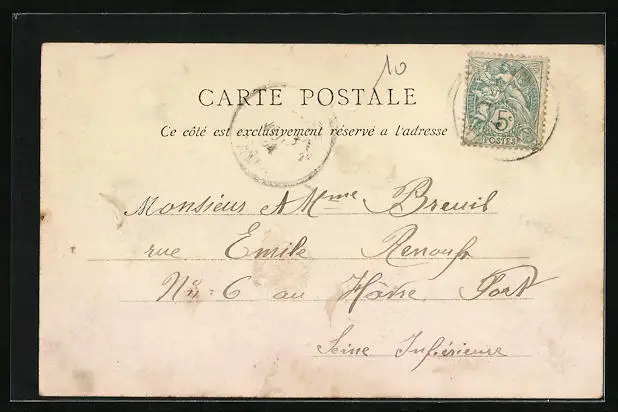 10
CARTE POSTALE
Ce côté est exclusivement réservé a l'adresse
5c
POSTES
Monsieur A Mme Breuil
rue Emile Renouf
No = 6 au Hâvre Port
Seine Inférieure